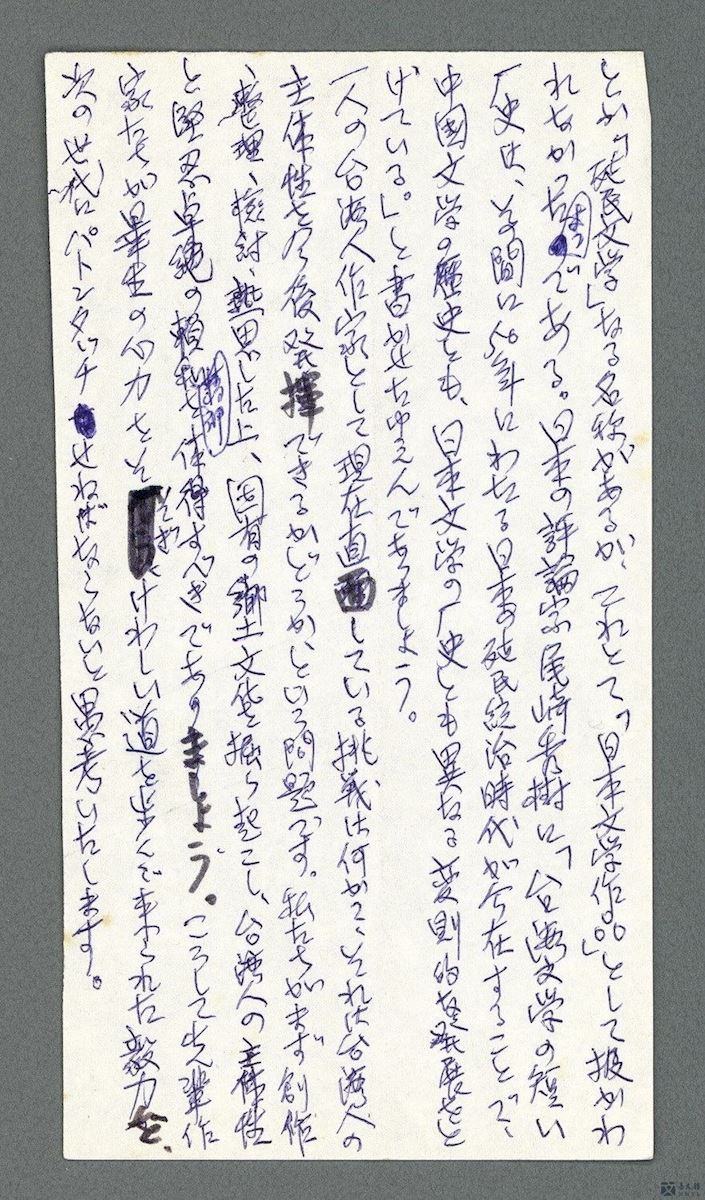 とか「殖民文学」なる名称があるが、これとて「日本文学作品」として扱かわ
れなかったまつである。日本の評論家尾崎秀樹に「台湾文学の短い
厂史は、その間に50年にわたる日本の殖民統治時代が介在することで、
中國文学の歴史とも、日本文学の厂史とも異なる変則的な発展をと
げている。」と書かせたゆえんでありましょう。
一人の台湾人作家として現在直面している挑戦は何か?、それは台湾人の
主体性を今後発揮できるかどうか、という問題です。私たちがまず創作
、整理、検討、熟思した上、固有の郷土文化を掘り起こし、台湾人の主体性
と堅忍卓絶の精神を体得すべきでありましょう。こうして先輩作
家たちが畢生の心力をそそぎ、けわしい道を歩んで来られた毅力を、
次の世代にバトンタッチせねばならないと思考いたします。